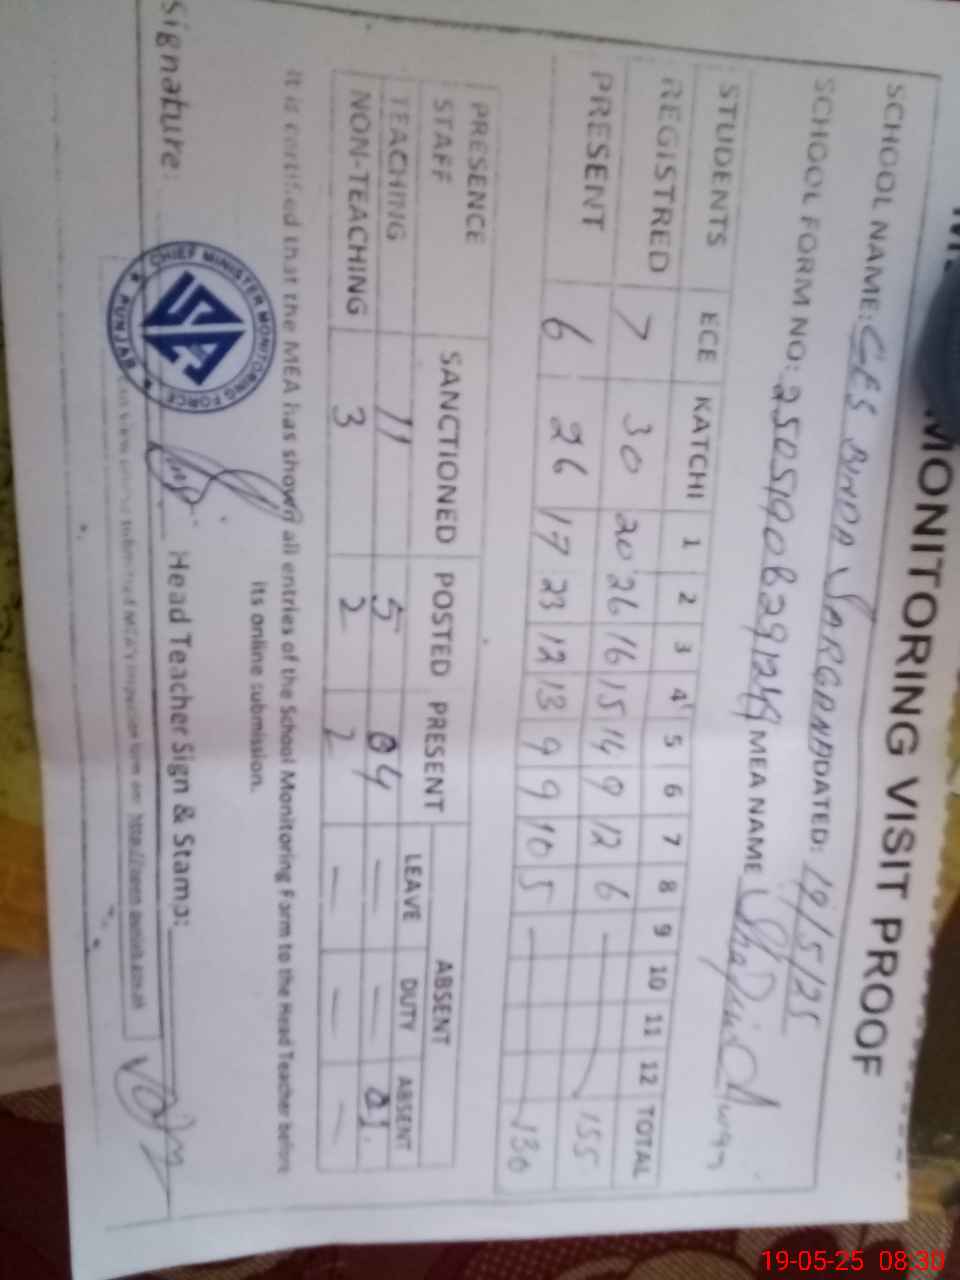 MONITORING VISIT PROOF
SCHOOL NAME: GES BINDA SARGANA DATED: 19/5/25
SCHOOL FORM NO: MEA NAME
STUDENTS ECE KATCHI 1 2 3 4 5 6 7 8 9 10 11 12 TOTAL
REGISTRED 7 30 20 26 16 15 14 9 12 6 155
PRESENT 6 26 17 23 12 13 9 9 10 5 130
PRESENCE STAFF SANCTIONED POSTED PRESENT ABSENT
LEAVE DUTY ABSENT
TEACHING 11 5 04 — — 01
NON-TEACHING 3 2 2 — — —
It is certified that the MEA has shown all entries of the School Monitoring Form to the Head Teacher before
its online submission.
Signature: Head Teacher Sign & Stamp:
CHIEF MINISTER MONITORING FORCE
PUNJAB
19-05-25 08:30